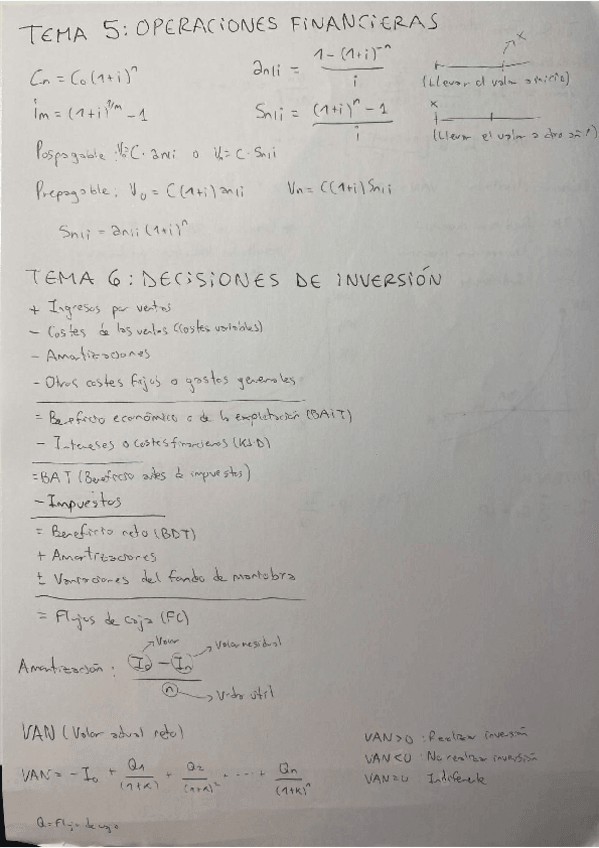 TEMA 5: OPERACIONES FINANCIERAS
Cn = C0 (1+i)^n
an|i = 1-(1+i)^-n / i
x
(Llevar el valor a inicio)
im = (1+i)^1/m - 1
Sn|i = (1+i)^n - 1 / i
x
(Llevar el valor a otro año)
Pospagable: V0=C·an|i o Vn=C·Sn|i
Prepagable: V0 = C(1+i)an|i Vn = C(1+i)Sn|i
Sn|i = an|i (1+i)^n
TEMA 6: DECISIONES DE INVERSIÓN
+ Ingresos por ventas
- Costes de las ventas (costes variables)
- Amortizaciones
- Otros costes fijos o gastos generales
= Beneficio económico o de la explotación (BAIT)
- Intereses o costes financieros (KiD)
=BAT (Beneficio antes de impuestos)
- Impuestos
= Beneficio neto (BDT)
+ Amortizaciones
± Variaciones del fondo de maniobra
= Flujos de caja (FC)
Valor
Valor residual
Amortización: I0 - In / n
Vida útil
VAN (Valor actual neto)
VAN>0: Realizar inversión
VAN<0: No realizar inversión
VAN=0: Indiferente
VAN = -I0 + Q1/(1+K) + Q2/(1+K)^2 ... + Qn/(1+K)^n
Q=Flujo de caja